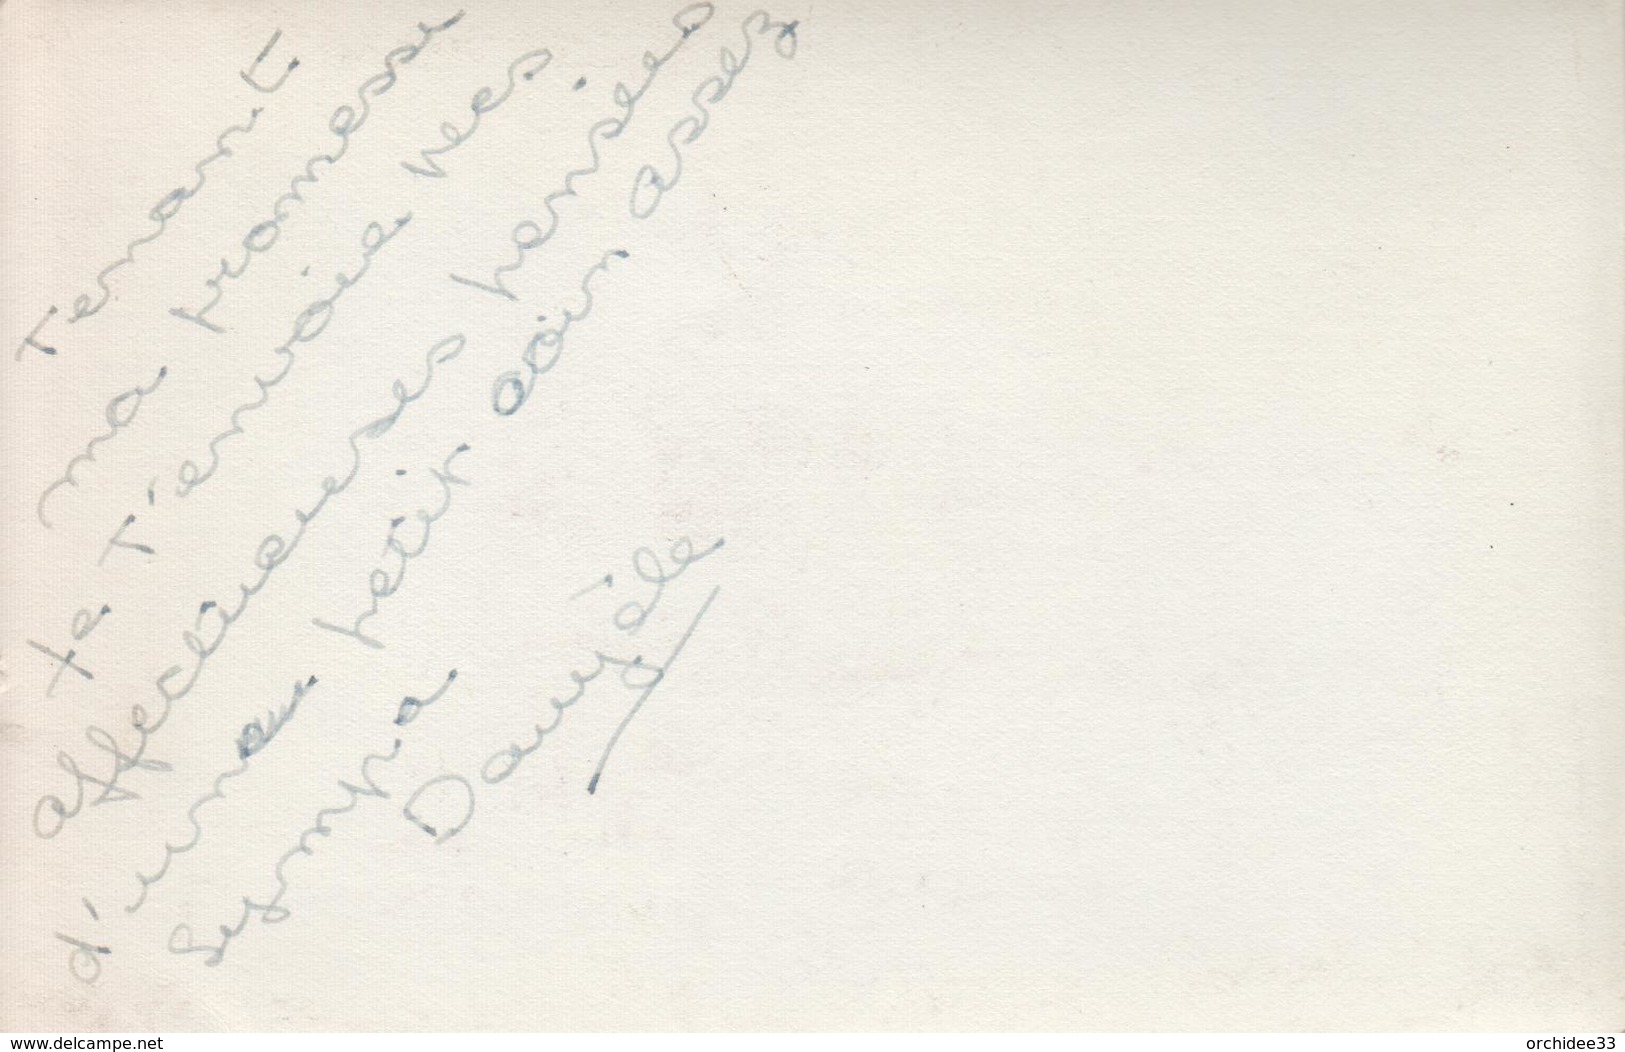 Tenant
ma promesse
te t'envoie mes
affectueuses pensées
d'un petit coin assez
sympa
Danyèle
www.delcampe.net
orchidee33